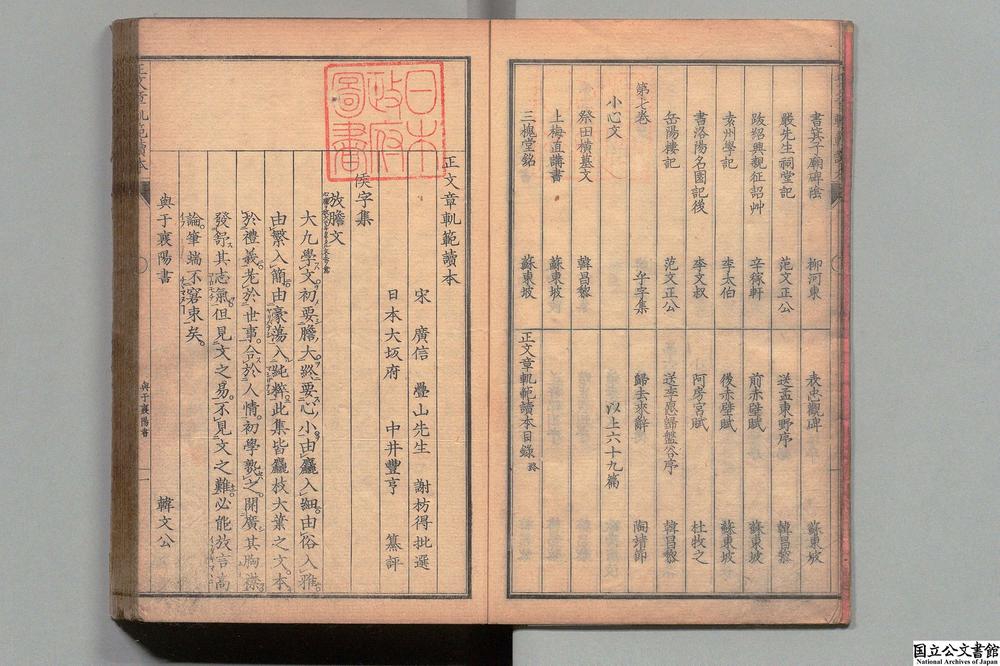 書箕子廟碑陰 柳河東 表忠觀碑 蘇東坡
嚴先生祠堂記 范文正公 送孟東野序 韓昌黎
跋紹興親征詔艸 辛稼軒 前赤壁賦 蘇東坡
袁州學記 李太伯 後赤壁賦 蘇東坡
書洛陽名園記後 李文叔 阿房宮賦 杜牧之
岳陽樓記 范文正公 送李愿歸盤谷序 韓昌黎
第七卷 乎字集 歸去來辭 陶靖節
小心文 以上六十九篇
祭田橫墓文 韓昌黎
上梅直講書 蘇東坡
三槐堂銘 蘇東坡 正文章軌範讀本目錄 終
正文章軌範讀本
宋 廣信 疊山先生 謝枋得批選
日本大坂府 中井豐亨 纂評
侯字集
放膽文
大凡學文初要膽大終要心小由麤入細由俗入雅
由繁入簡由豪蕩入純粹此集皆麤枝大葉之文本
於禮義老於世事合於人情初學熟之開廣其胸襟
發舒其志氣但見文之易不見文之難必能放言高
論筆端不窘束矣
與于襄陽書 韓文公
與于襄陽書 一
正文章軌範讀本
日本
政府
圖書
国立公文書館
National Archives of Japan